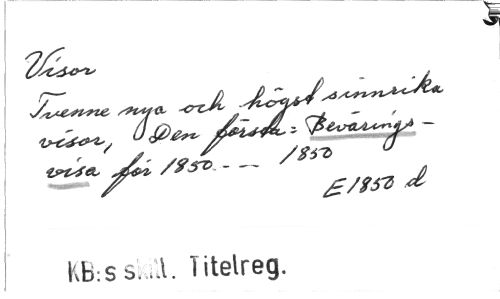 Visor
Tvenne nya och högst sinnrika
visor, Den första: Bevärings-
visa för 1850 ---- 1850
E 1850 d
KB:s skillt. Titelreg.